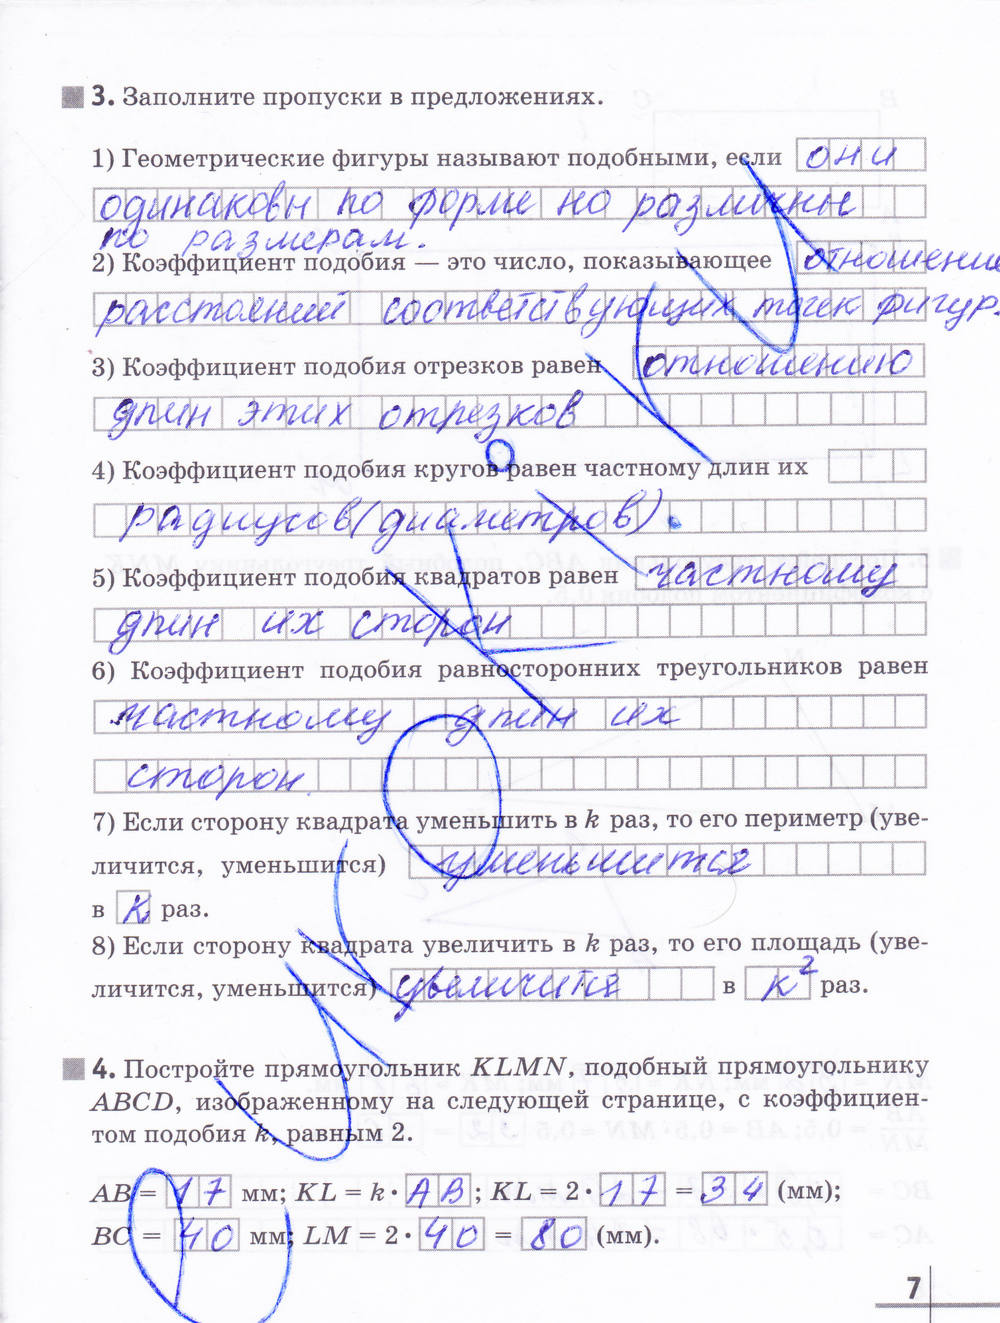 3. Заполните пропуски в предложениях.
1) Геометрические фигуры называют подобными, если они
одинаковы по форме но различны
по размерам.
2) Коэффициент подобия — это число, показывающее отношение
расстояний соответствующих точек фигур.
3) Коэффициент подобия отрезков равен отношению
длин этих отрезков
4) Коэффициент подобия кругов равен частному длин их
радиусов (диаметров).
5) Коэффициент подобия квадратов равен частному
длин их сторон
6) Коэффициент подобия равносторонних треугольников равен
частному длин их
сторон.
7) Если сторону квадрата уменьшить в k раз, то его периметр (уве-
личится, уменьшится) уменьшится
в k раз.
8) Если сторону квадрата увеличить в k раз, то его площадь (уве-
личится, уменьшится) увеличится в k² раз.
4. Постройте прямоугольник KLMN, подобный прямоугольнику
ABCD, изображенному на следующей странице, с коэффициен-
том подобия k, равным 2.
AB = 17 мм; KL = k · AB; KL = 2 · 17 = 34 (мм);
BC = 40 мм; LM = 2 · 40 = 80 (мм).
7